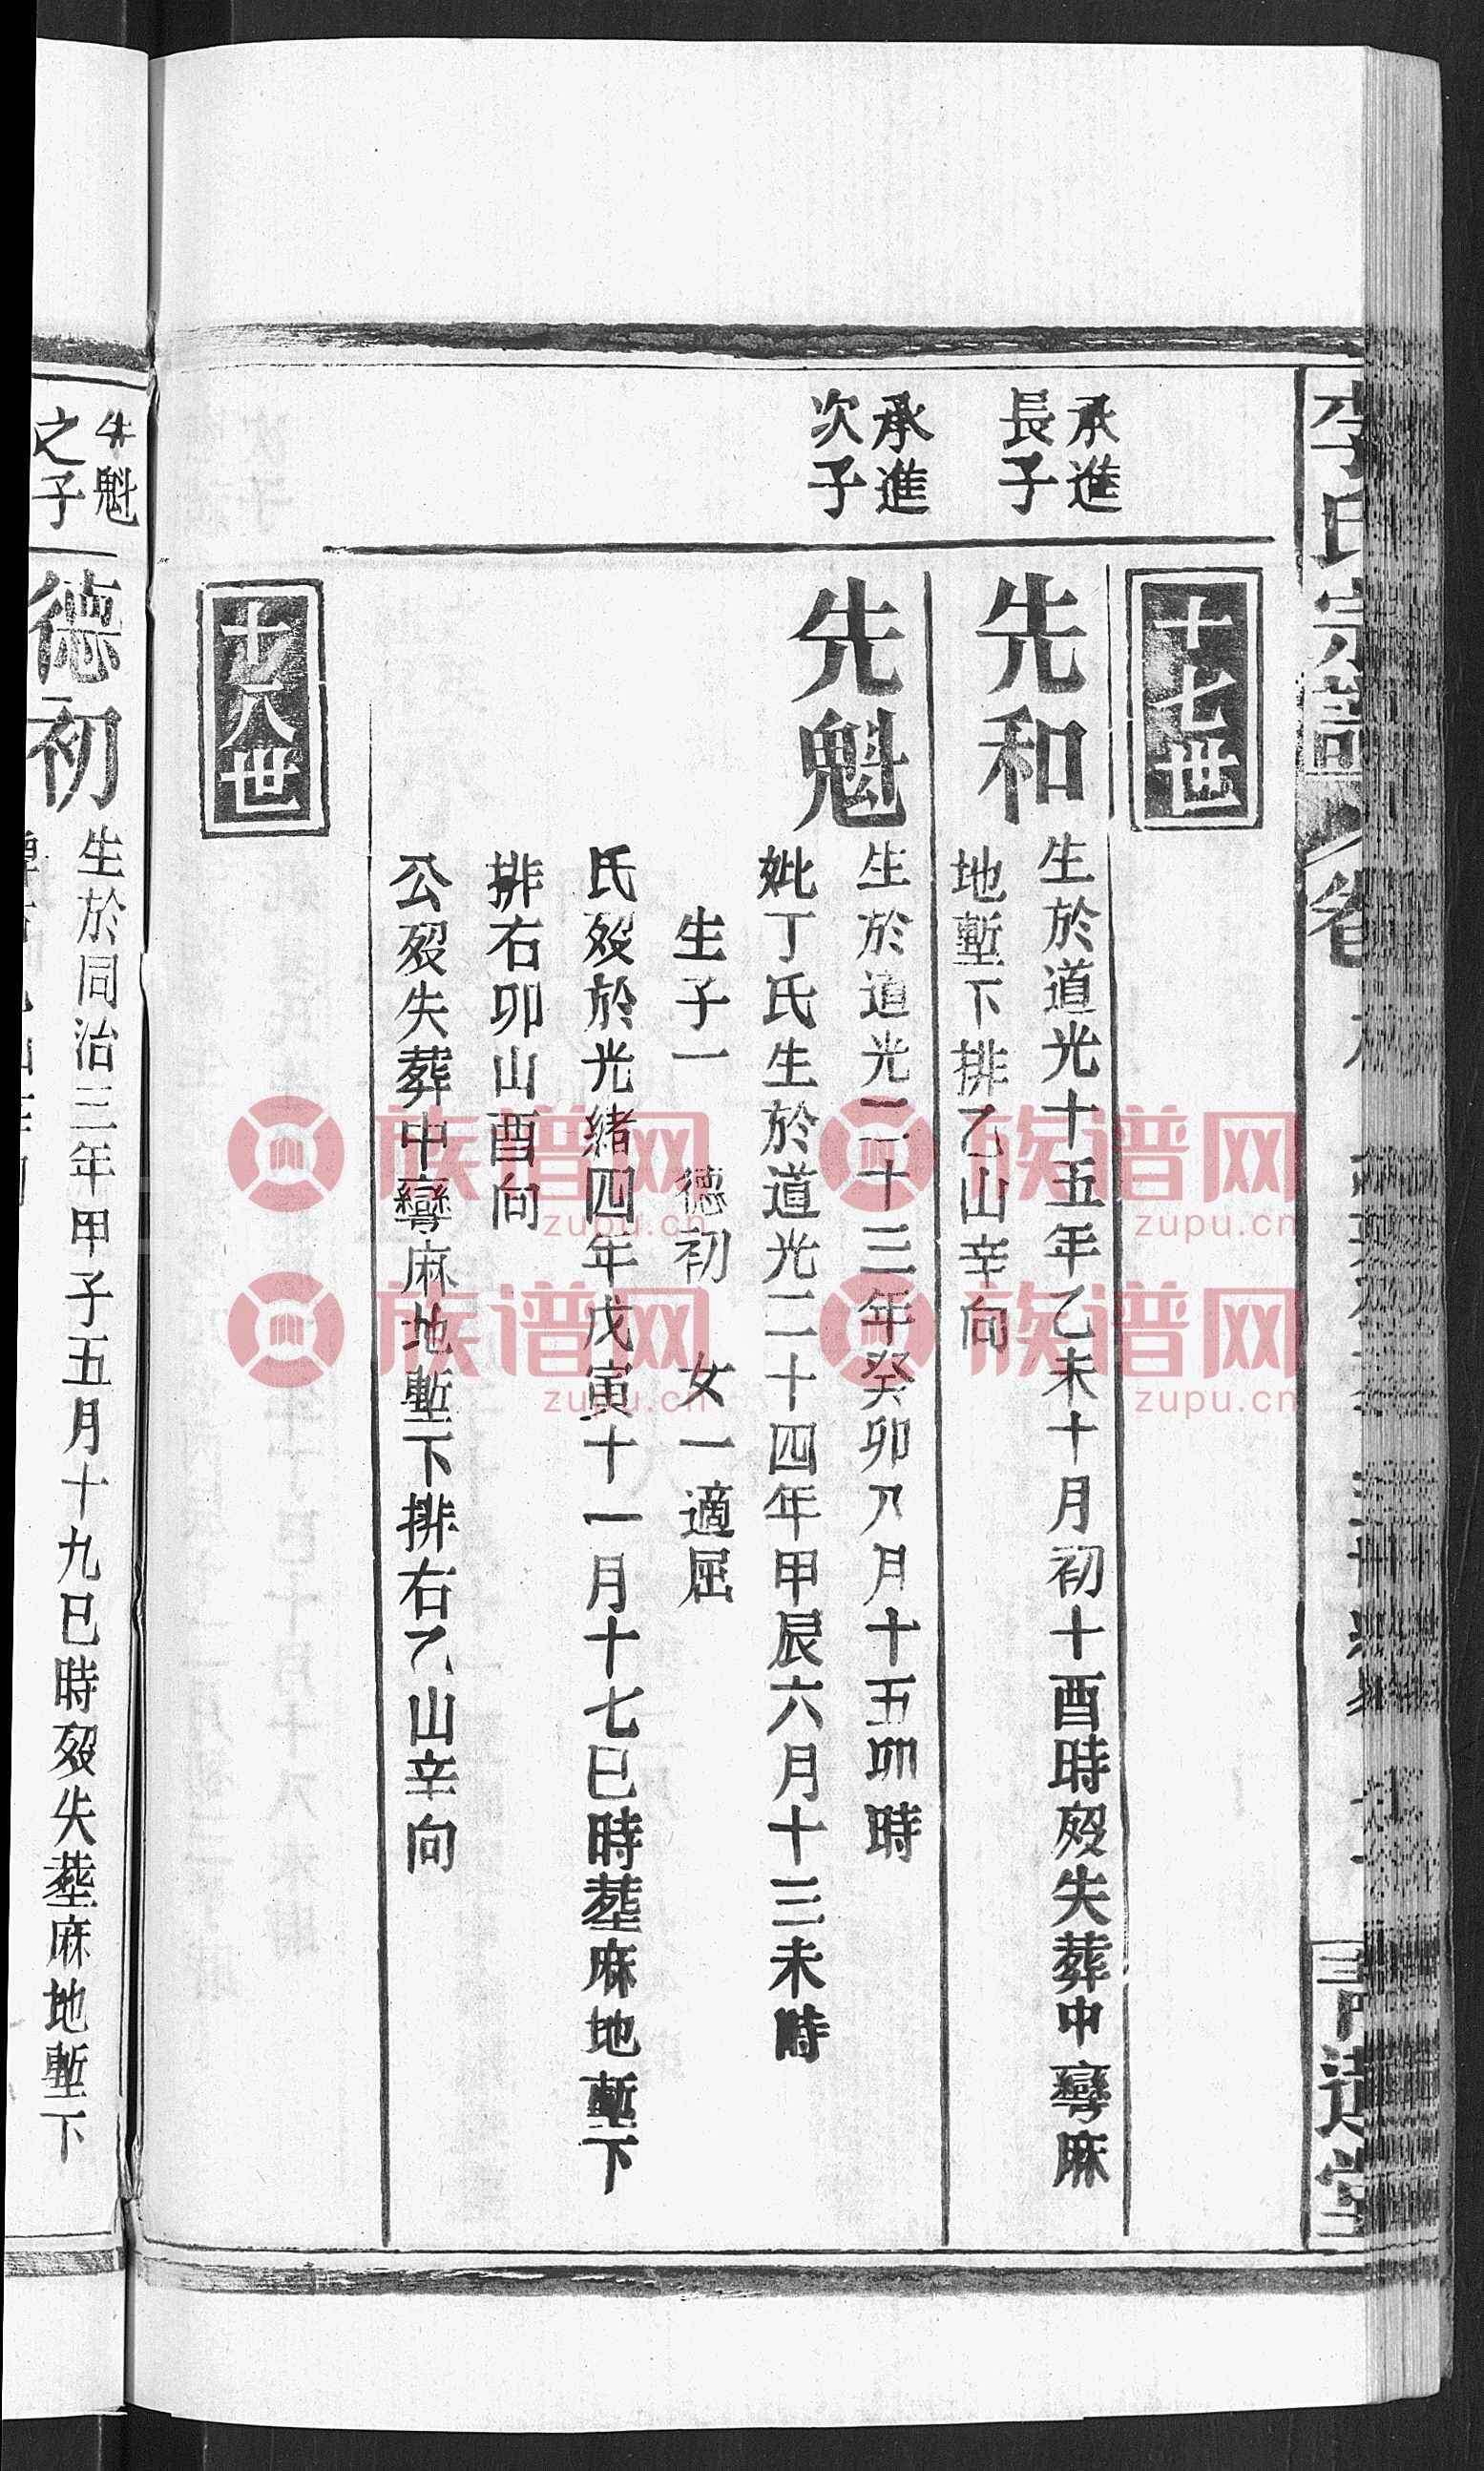 李氏宗譜 卷
十七世
承進
長子
先和
生於道光十五年乙未十月初十酉時歿失葬中彎麻
地塹下排乙山辛向
承進
次子
先魁
生於道光二十三年癸卯八月十五卯時
妣丁氏生於道光二十四年甲辰六月十三未時
生子一 德初 女一適屈
氏歿於光緒四年戊寅十一月十七巳時塟麻地塹下
排右卯山酉向
公歿失葬中彎麻地塹下排右乙山辛向
十八世
先魁
之子
德初
生於同治三年甲子五月十九巳時歿失塟麻地塹下
族谱网
zupu.cn
族谱网
zupu.cn
族谱网
zupu.cn
族谱网
zupu.cn